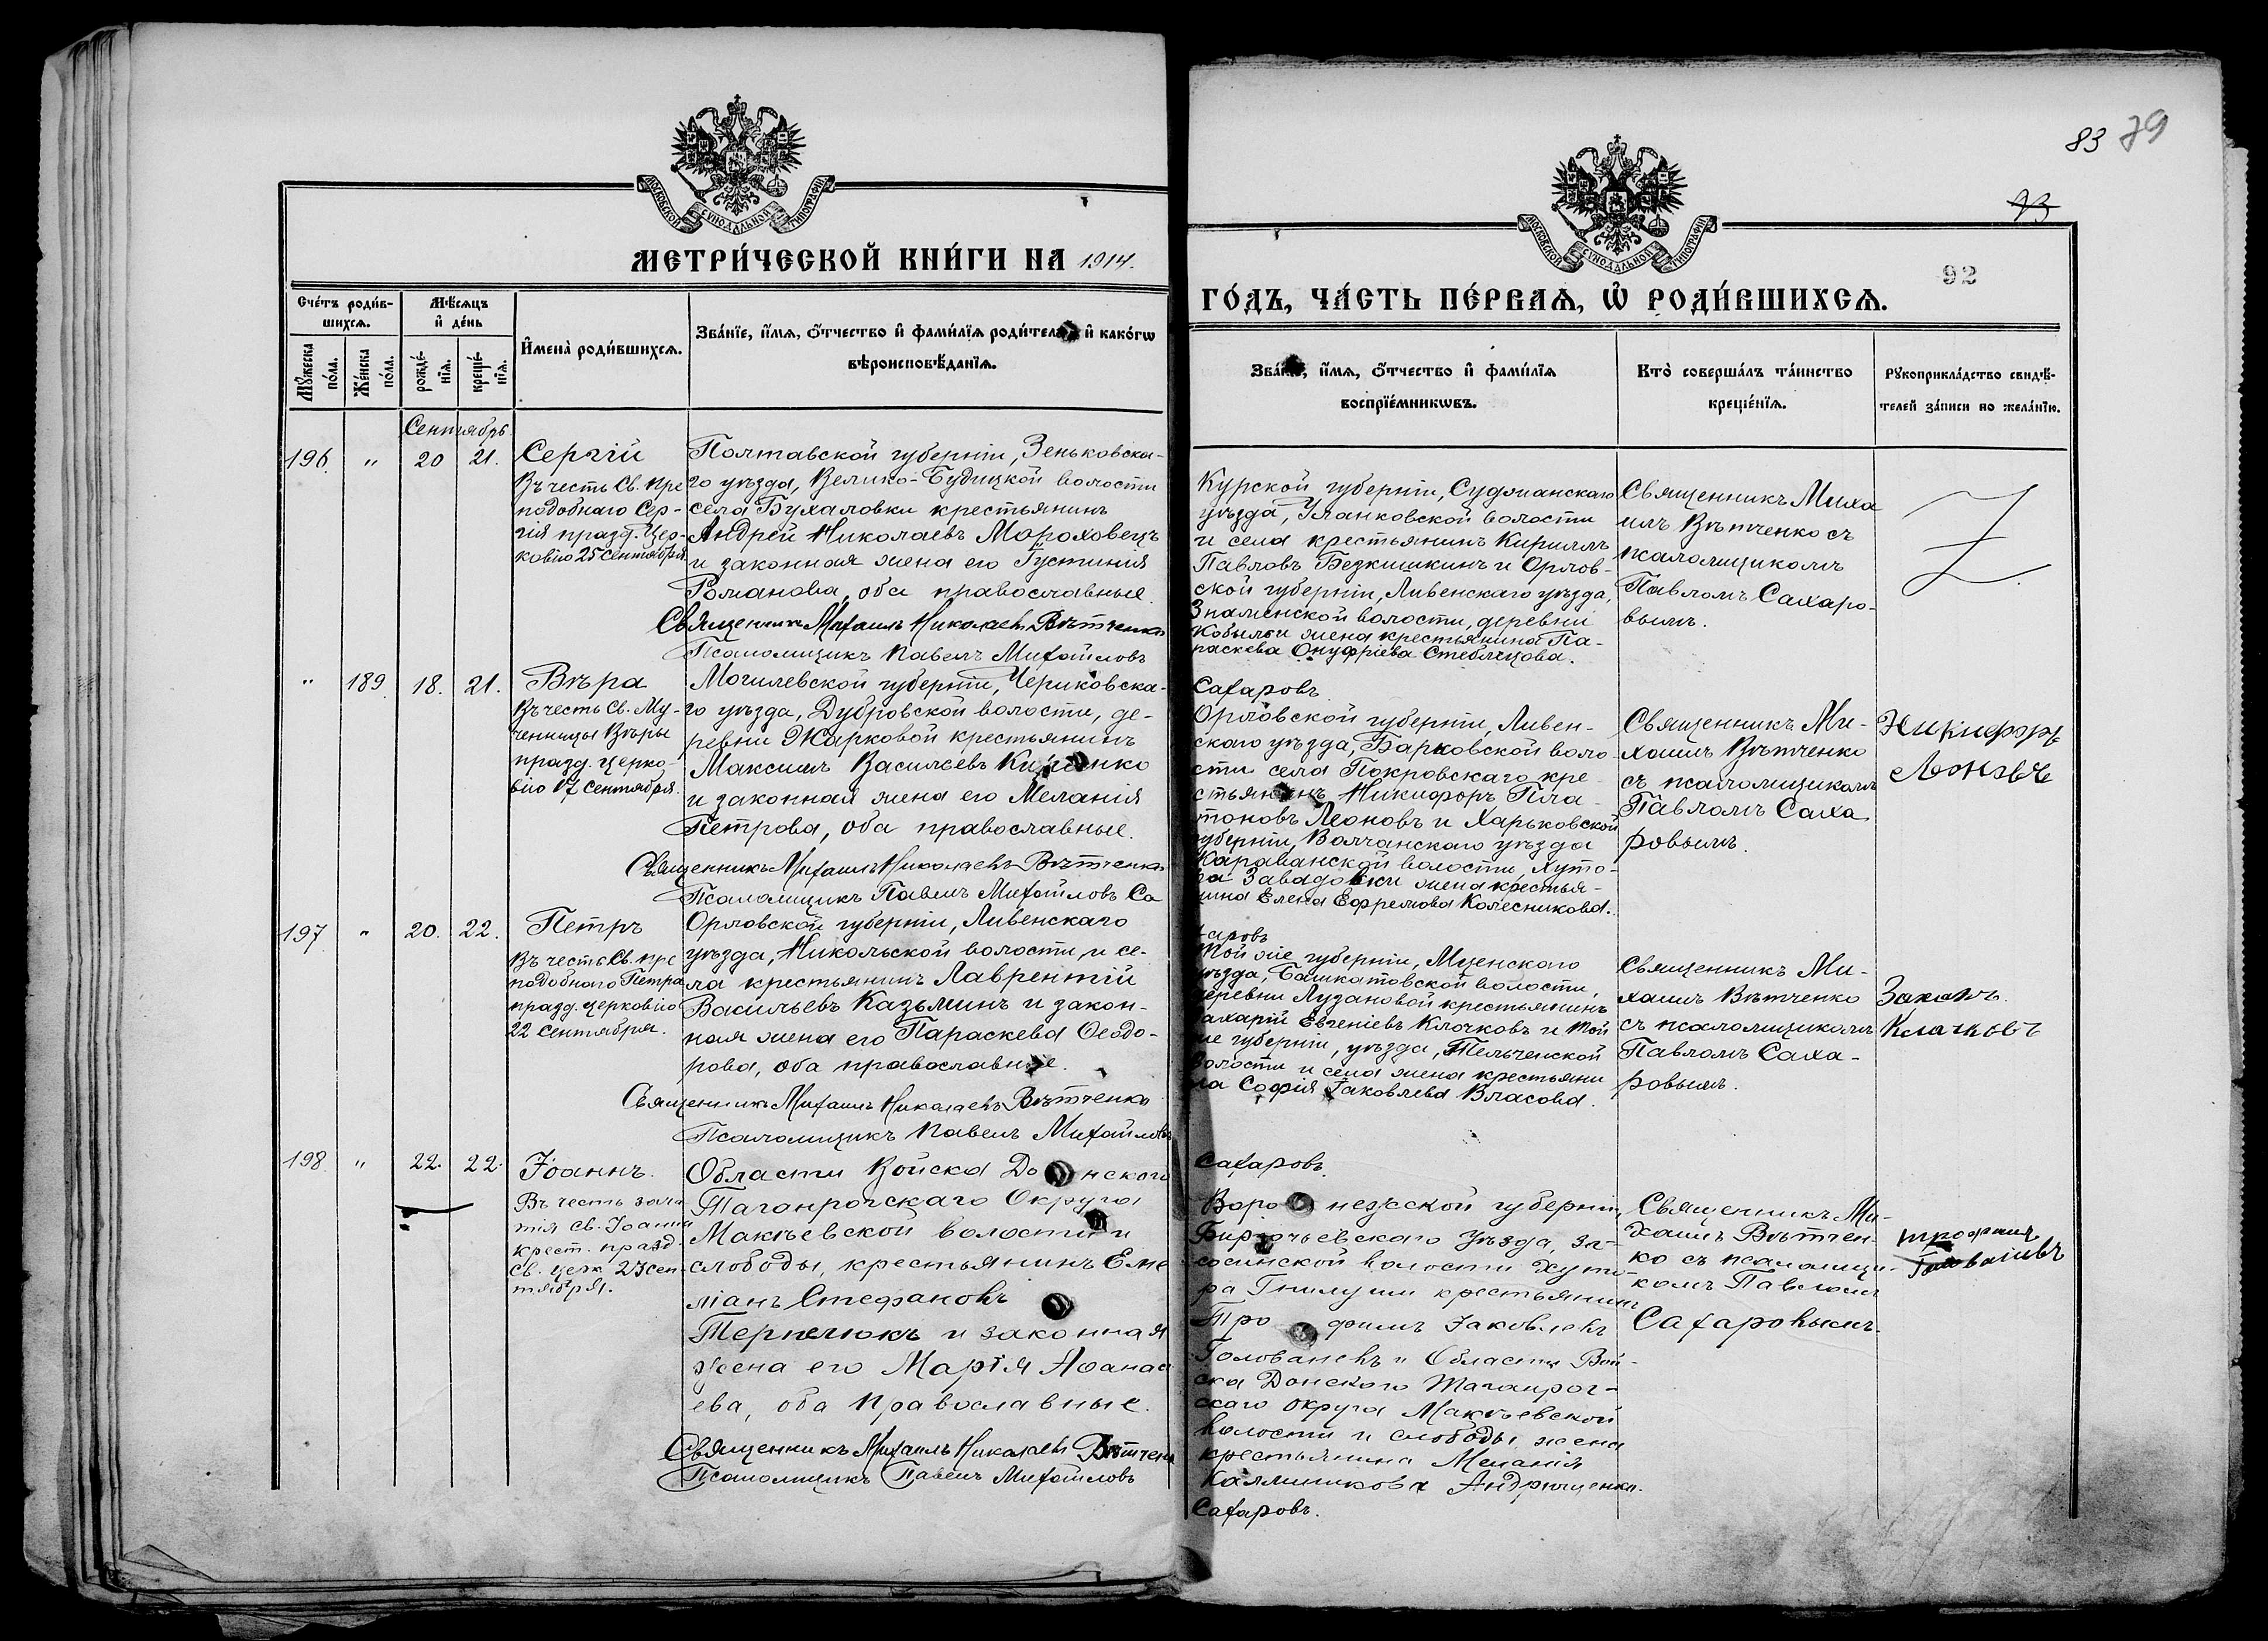 83 79
93
92
МОСКОВСКОЙ СѴНОДАЛЬНОЙ ТИПОГРАФІИ
МОСКОВСКОЙ СѴНОДАЛЬНОЙ ТИПОГРАФІИ
МЕТРИ́ЧЕСКОЙ КНИ́ГИ НА 1914.
ГО́ДЪ, ЧА́СТЬ ПЕ́РВАѦ, Ѡ҆ РОДИ́ВШИХСѦ.
Сче́тъ роди́в-
шихсѧ.
Мѣ́сѧцъ
и҆ де́нь
Мꙋ́жеска
по́ла.
Же́нска
по́ла.
рожде́-
нїѧ.
креще́-
нїѧ.
И҆мена̀ роди́вшихсѧ.
Зва́нїе, и҆́мѧ, ѻ҆́тчество и҆ фами́лїѧ роди́телей и҆ како́гѡ
вѣроисповѣ́данїѧ.
Зва́нїе, и҆́мѧ, ѻ҆́тчество и҆ фами́лїѧ
воспрїе́мникѡвъ.
Кто̀ соверша́лъ та́инство
креще́нїѧ.
Рꙋкоприкла́дство свидѣ́-
телей за́писи по жела́нїю.
Сентябрь
196. " 20 21. Сергій
Въ честь Св. пре
подобнаго Сер-
гія празд. Цер-
ковію 25 сентября
Полтавской губерніи, Зеньковска-
го уѣзда, Велико-Будицкой волости
села Бухаловки крестьянинъ
Андрей Николаевъ Мороховецъ
и законная жена его Іустинія
Романова, оба православные.
Священникъ Михаилъ Николаевъ Вѣтченко
Псаломщикъ Павелъ Михайловъ
Курской губерніи, Суджанскаго
уѣзда, Уланковской волости
и села крестьянинъ Кириллъ
Павловъ Безкишкинъ и Орлов-
ской губерніи, Ливенскаго уѣзда,
Знаменской волости, деревни
Кобылки жена крестьянина Па-
раскева Онуфріева Стеблецова.
Сахаровъ
Священникъ Миха
илъ Вѣтченко съ
псаломщикомъ
Павломъ Сахаро-
вымъ.
" 189 18. 21. Вѣра
Въ честь Св. Му-
ченницы Вѣры
празд. церко-
вію 17 сентября.
Могилевской губерніи, Чериковска-
го уѣзда, Дубровской волости, де-
ревни Жарковой крестьянинъ
Максимъ Васильевъ
и законная жена его Меланія
Петрова, оба православные.
Священникъ Михаилъ Николаевъ Вѣтченко
Псаломщикъ Павелъ Михайловъ Са
Орловской губерніи, Ливен-
скаго уѣзда, Барковской воло
сти села Покровскаго кре-
стьянинъ Никифоръ Пла-
тоновъ Леоновъ и Харьковской
губерніи, Волчанскаго уѣзда
Караванской волости, Хуто-
ра Завадовки жена крестья-
нина Елена Ефремова Колесникова.
харовъ
Священникъ Ми-
хаилъ Вѣтченко
съ псаломщикомъ
Павломъ Саха
ровымъ.
Никифоръ
Леоновъ
197 " 20. 22. Петръ
Въ честь Св. пре
подобнаго Петра
празд. церковію
22 сентября.
Орловской губерніи, Ливенскаго
уѣзда, Никольской волости и се-
ла крестьянинъ Лаврентій
Васильевъ Казьминъ и закон-
ная жена его Параскева Ѳеодо-
рова, оба православные.
Священникъ Михаилъ Николаевъ Вѣтченко
Псаломщикъ Павелъ Михайловъ
Той же губерніи, Мценскаго
уѣзда, Башкатовской волости,
деревни Лузановой крестьянинъ
Захарій Евгеніевъ Клочковъ и той
же губерніи, уѣзда, Тельченской
волости и села жена крестьяни
на Софія Іаковлева Власова.
Сахаровъ.
Священникъ Ми-
хаилъ Вѣтченко
съ псаломщикомъ
Павломъ Саха-
ровымъ.
198. " 22. 22. Іоаннъ.
Въ честь зача
тія св. Іоанна
крест. празд.
Св. церк. 23 сен-
тября.
Области Войска Донского
Таганрогскаго Округа
Макѣевской волости и
слободы, крестьянинъ Еме
ліанъ Стефановъ
и законная
жена его Марія Аѳанась
ева, оба православные.
Священникъ Михаилъ Николаевъ Вѣтченк
Псаломщикъ Павелъ Михайловъ
Воронежской губерніи,
Бирюченскаго Уѣзда,
волости Хуто-
ра Гнилуши крестьянинъ
Трофимъ Іаковлевъ
Голованевъ и Области Вой-
ска Донского Таганрог-
скаго округа Макѣевской
волости и слободы жена
крестьянина Меланія
Каллиникова Андрющенко.
Сахаровъ.
Священникъ Ми-
хаилъ Вѣтчен-
ко съ псаломщи-
комъ Павломъ
Сахаровымъ.